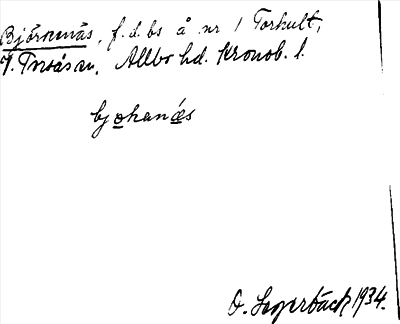 Björnnäs, f.d. bs å nr 1 Torkult,
V. Torsås sn, Allbo hd. Kronob. l.
bjohanäs
O. Sagerbäck 1934.